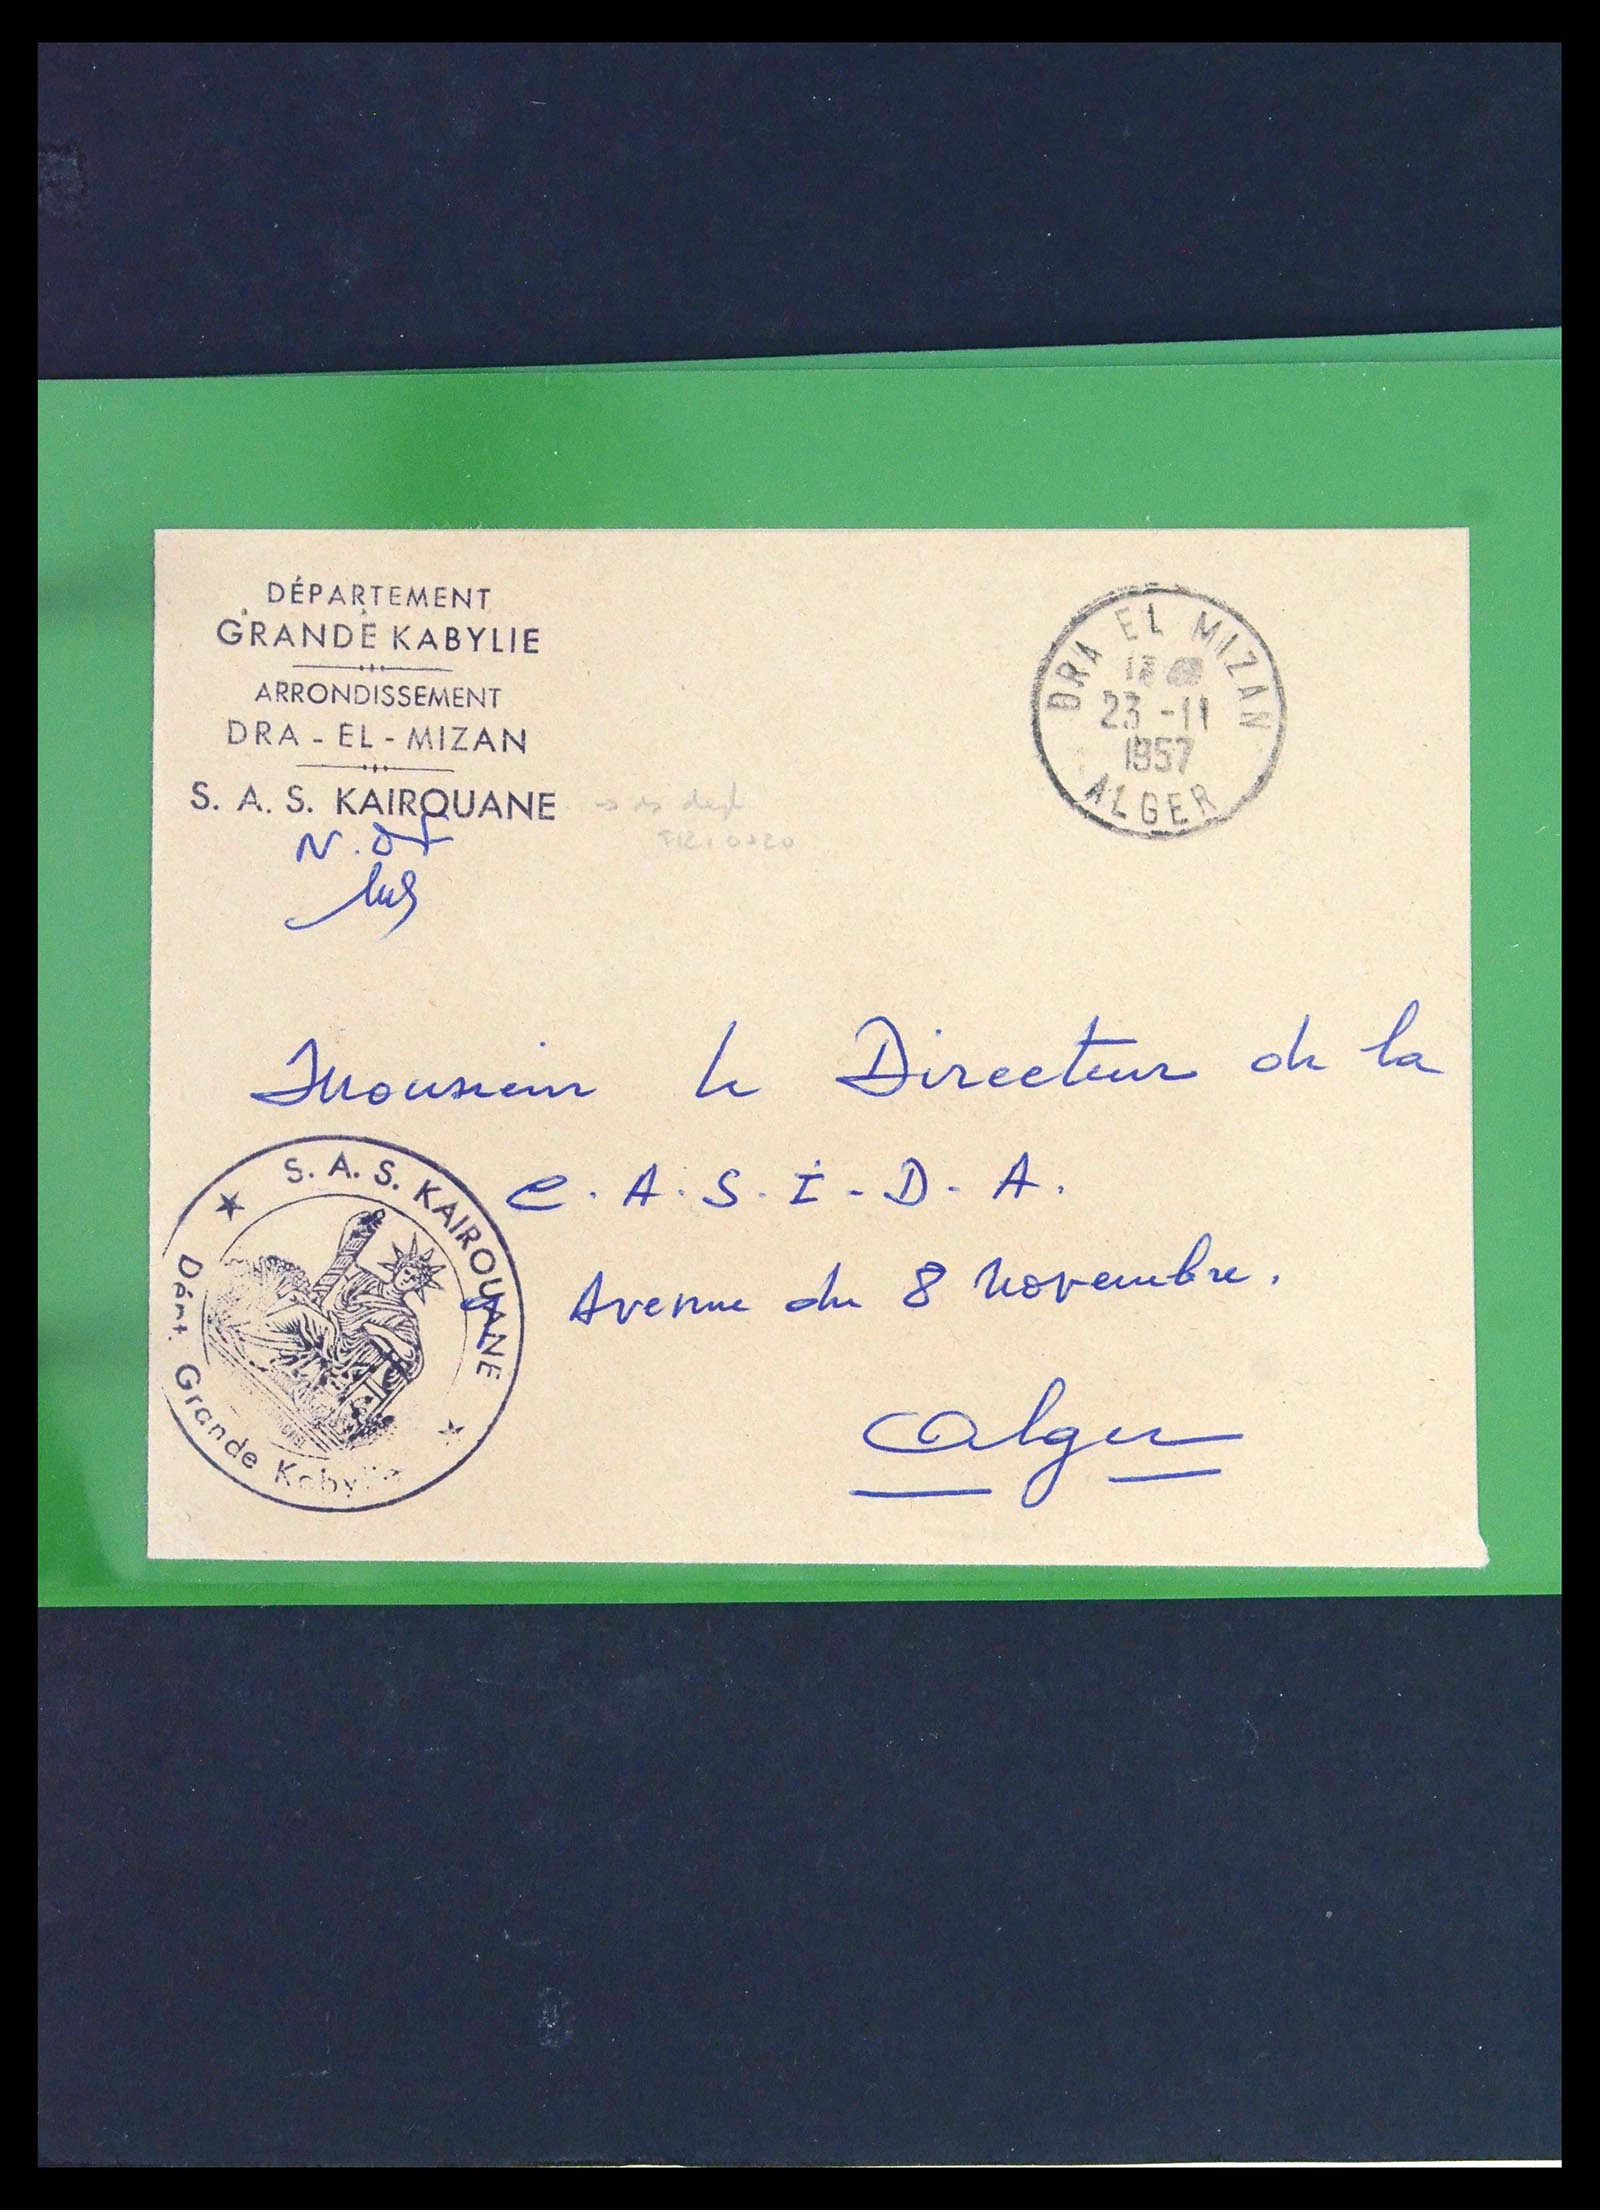 DÉPARTEMENT
GRANDE KABYLIE
ARRONDISSEMENT
DRA - EL - MIZAN
S. A. S. KAIROUANE
DRA EL MIZAN
23 -11
1957
ALGER
Monsieur le Directeur de la
C. A. S. I - D - A.
Avenue du 8 Novembre.
Alger
S. A. S. KAIROUANE
Dépt. Grande Kabylie